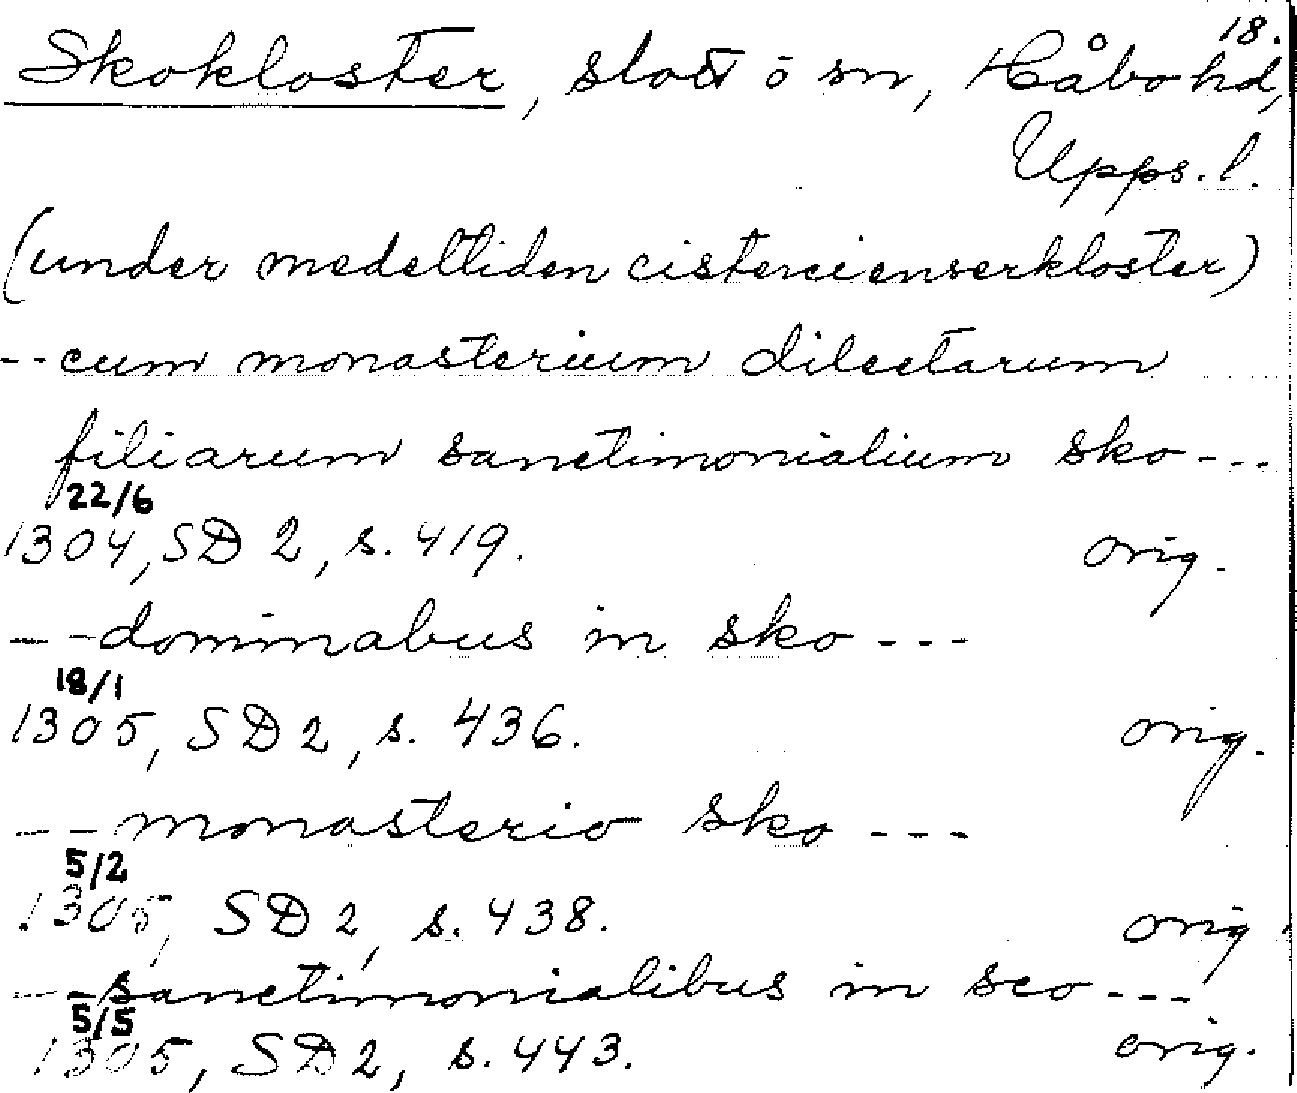 18.
Skokloster, slott o sn, Håbo hd,
Upps. l.
(under medeltiden cistercienserkloster)
-- cum monasterium dilectarum
filiarum sanctimonialium sko ---
22/6
1304, SD 2, s. 419. orig.
-- dominabus in sko ---
18/1
1305, SD 2, s. 436. orig.
-- monasterio sko ---
5/2
1305, SD 2, s. 438. orig.
-- sanctimonialibus in sco ---
5/5
1305, SD 2, s. 443. orig.